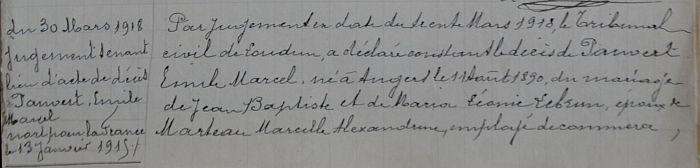 du 30 Mars 1918
Jugement tenant
lieu d'acte de décès
Tanvert, Emile
Marcel
mort pour la France
le 13 Janvier 1915./
Par jugement en date du trente Mars 1918, le Tribunal
civil de Loudun, a déclaré constant le décès de Tanvert
Emile Marcel, né à Angers le 11 Août 1890, du mariage
de Jean Baptiste et de Maria Léonie Lebrun, époux de
Marteau Marcelle Alexandrine, employé de commerce,